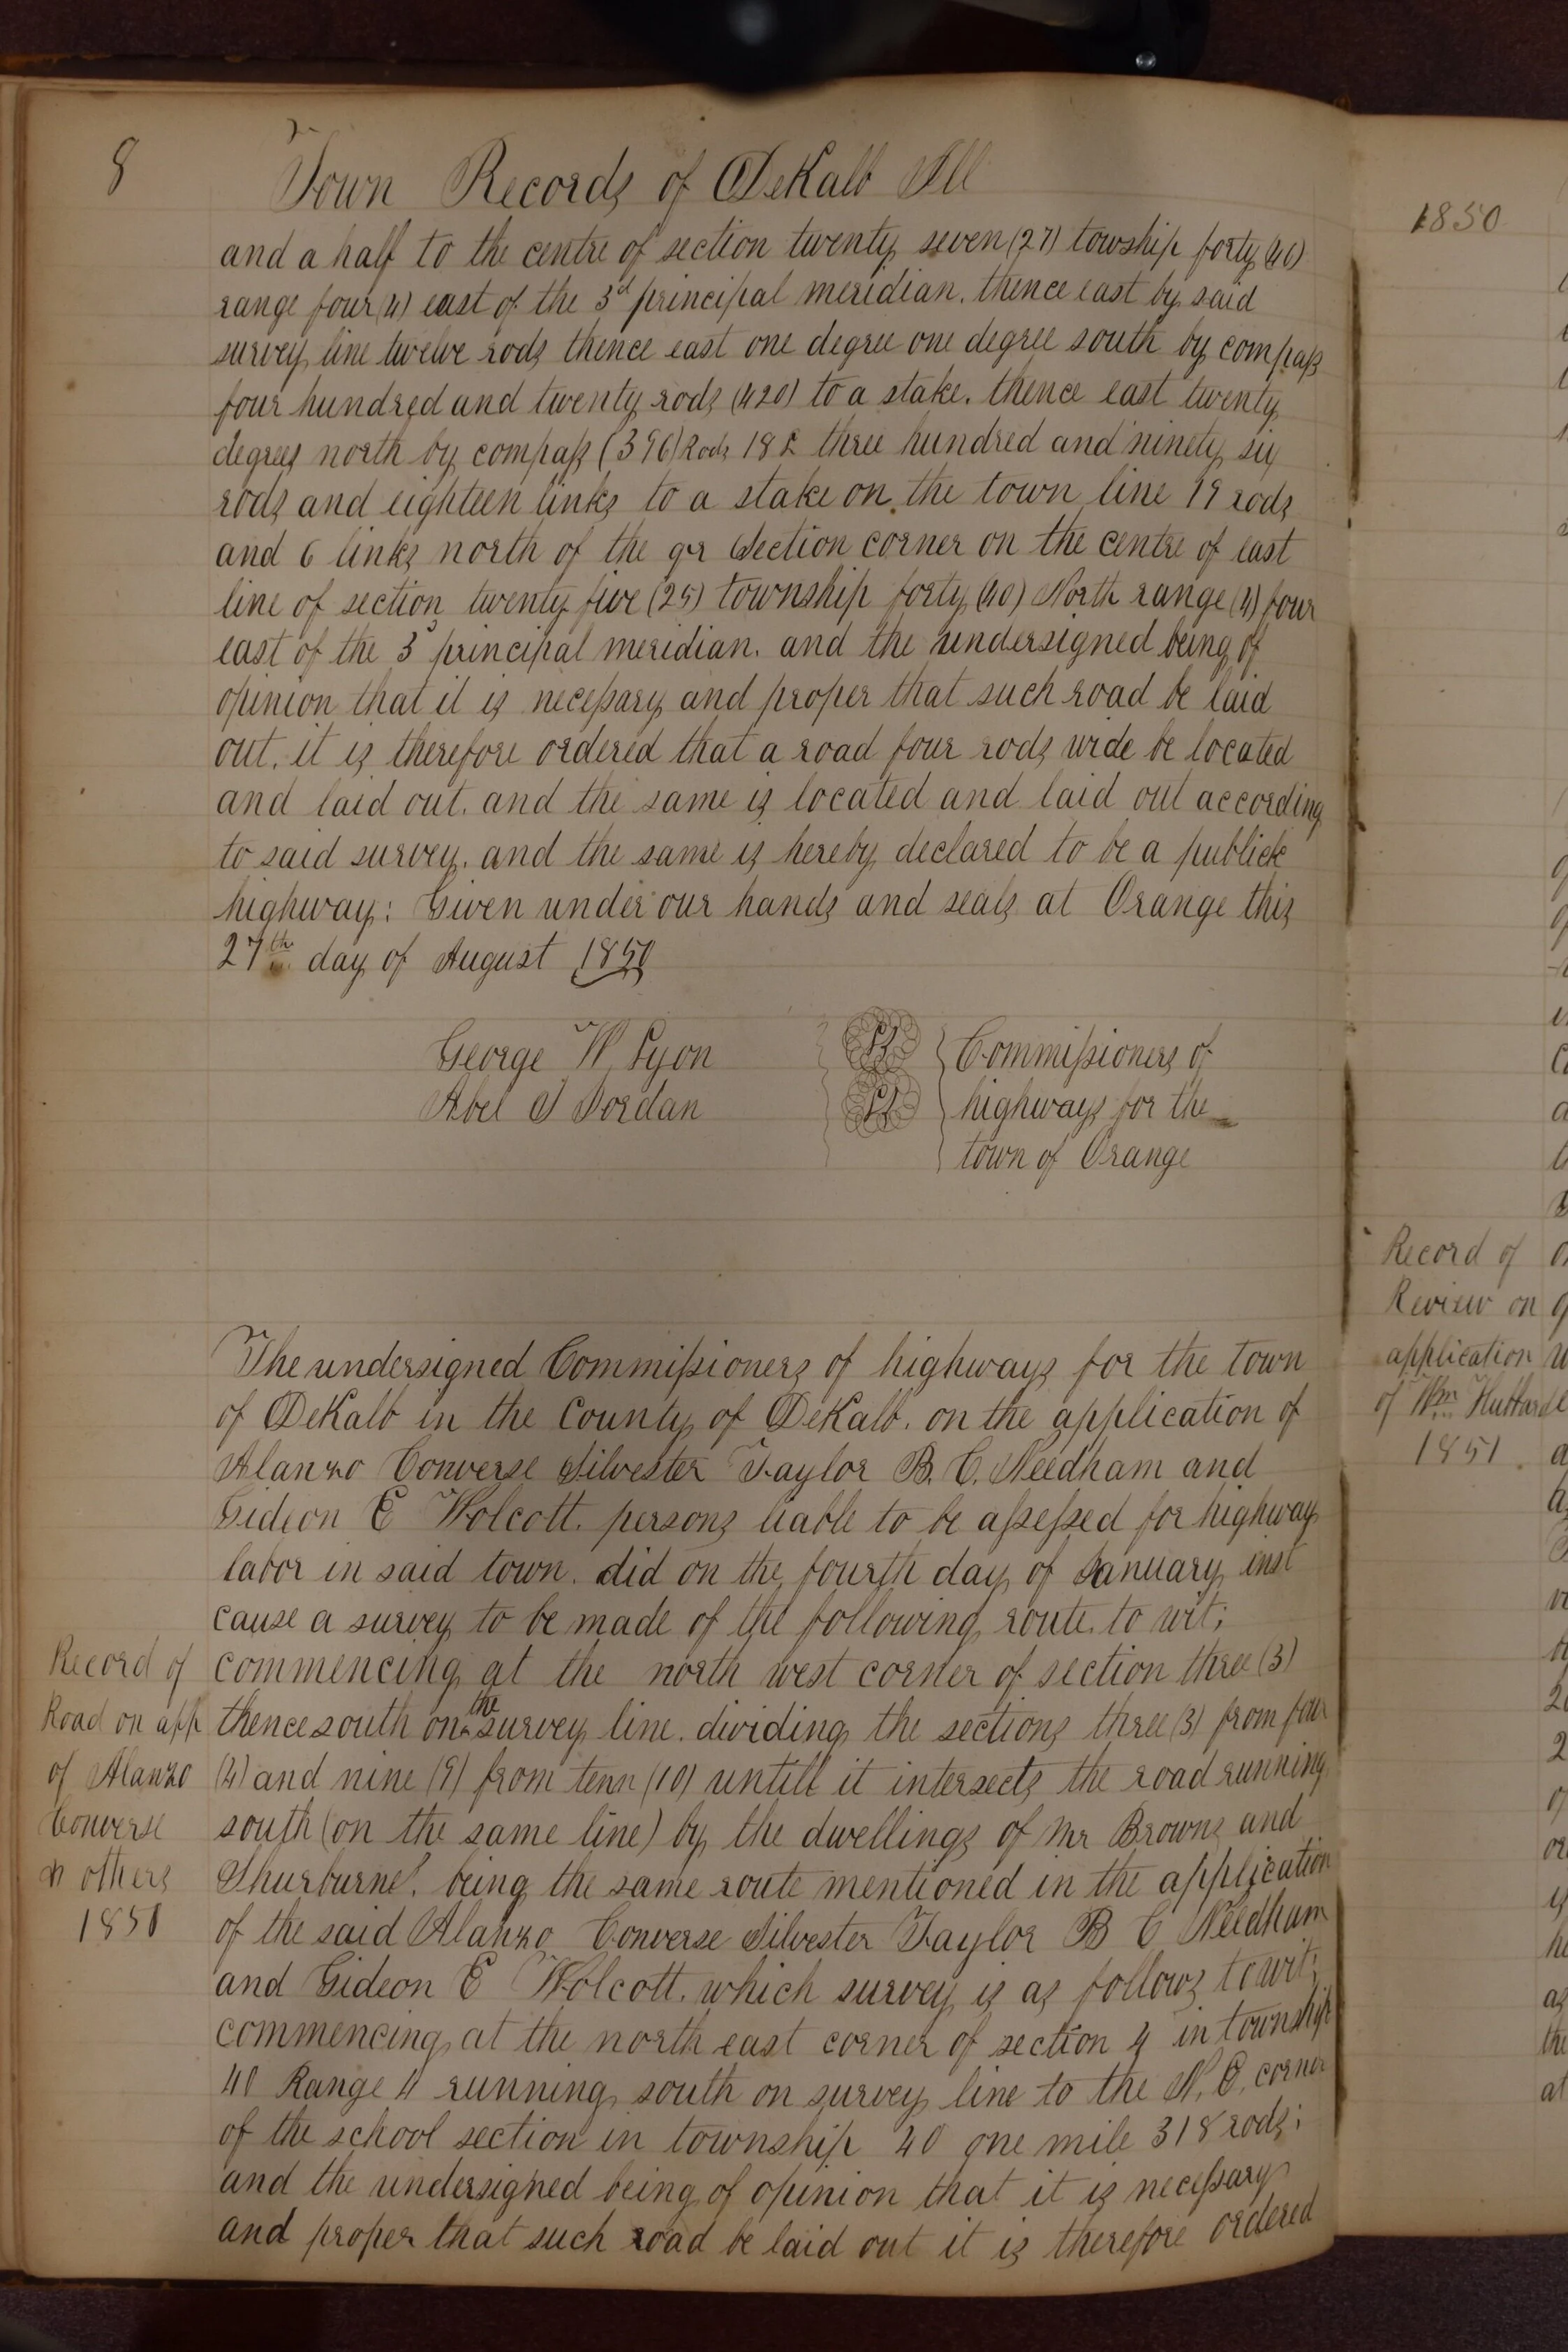 8
Town Records of DeKalb Ill
and a half to the centre of section twenty seven (27) towship forty (40)
range four (4) east of the 3d principal meridian. thence east by said
survey line twelve rods thence east one degree one degree south by compass
four hundred and twenty rods (420) to a stake. thence east twenty
degrees north by compass (396) Rods 18 L three hundred and ninety six
rods and eighteen links to a stake on the town line 19 rods
and 6 links north of the qr Section corner on the centre of east
line of section twenty five (25) township forty (40) North range (4) four
east of the 3d principal meridian. and the undersigned being of
opinion that it is necessary and proper that such road be laid
out. it is therefore ordered that a road four rods wide be located
and laid out. and the same is located and laid out according
to said survey. and the same is hereby declared to be a publick
highway: Given under our hands and seals at Orange this
27th day of August 1850
George W Lyon
Abel S Jordan
Commissioners of
highways for the
town of Orange
The undersigned Commissioners of highways for the town
of DeKalb in the County of DeKalb. on the application of
Alanzo Converse Silvester Taylor B. C. Needham and
Gideon E Wolcott. persons liable to be assessed for highway
labor in said town. did on the fourth day of January inst
cause a survey to be made of the following route. to wit;
commencing at the north west corner of section three (3)
thence south on the survey line. dividing the sections three (3) from four
(4) and nine (9) from tenn (10) untill it intersects the road running
south (on the same line) by the dwellings of Mr Browns and
Shurburne'. being the same route mentioned in the application
of the said Alanzo Converse Silvester Taylor B C Needham
and Gideon E Wolcott. which survey is as follows to wit;
commencing at the north east corner of section 4 in township
40 Range 4 running south on survey line to the N. E. corner
of the school section in township 40 one mile 318 rods;
and the undersigned being of opinion that it is necessary
and proper that such road be laid out it is therefore ordered
Record of
Road on app
of Alanzo
Converse
n others
1851
1850
Record of
Review on
application
of Wm
1851.